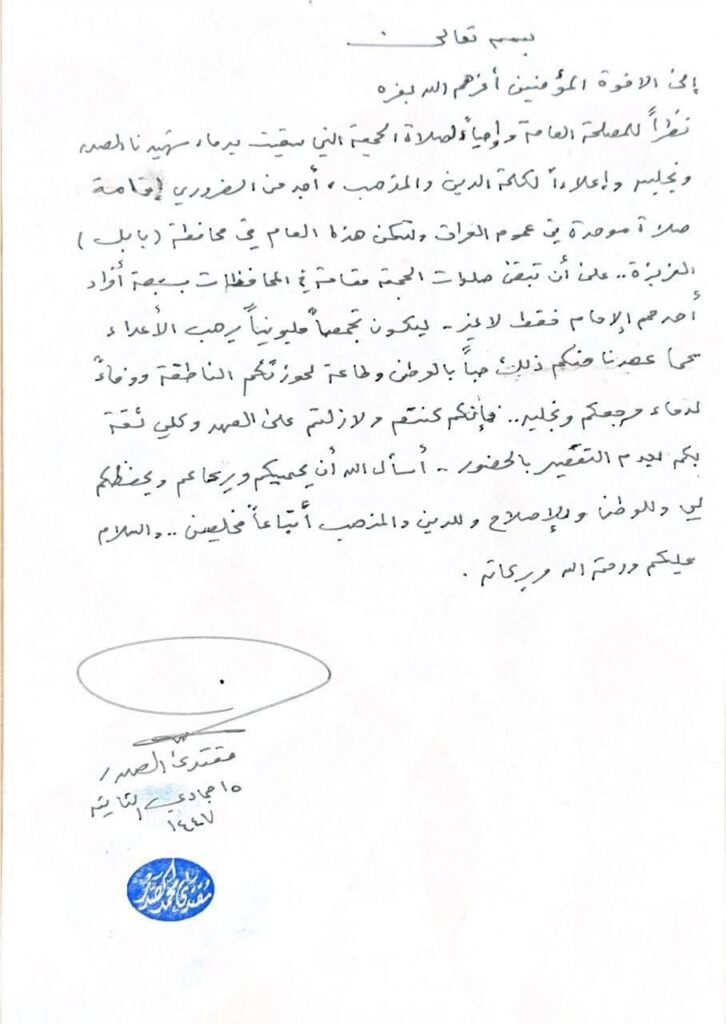 بسمه تعالى
إلى الاخوة المؤمنين أعزهم الله بعزه
نظراً للمصلحة العامة وإحياءً لصلاة الجمعة التي سقيت بدماء شهيدنا الصدر
ونجليه وإعلاءً لكلمة الدين والمذهب، أجد من الضروري إقامة
صلاة موحدة في عموم العراق ولتكن هذا العام في محافظة (بابل)
العزيزة.. على أن تبقى صلوات الجمعة مقامة في المحافظات بسبعة أفراد
أحدهم الإمام فقط لا غير.. ليكون تجمعاً مليونياً يرهب الأعداء
كما عهدنا منكم ذلك حباً بالوطن وطاعة لحوزتكم الناطقة ووفاءً
لدماء مرجعكم ونجليه.. فإنكم كنتم ولازلتم على العهد وكلي ثقة
بكم بعدم التقصير بالحضور.. أسأل الله أن يحميكم ويرعاكم ويحفظكم
لي وللوطن وللإصلاح وللدين والمذهب أتباعاً مخلصين.. والسلام
عليكم ورحمة الله وبركاته.
مقتدى الصدر
١٥ جمادى الثانية
١٤٤٧
مقتدى محمد الصدر